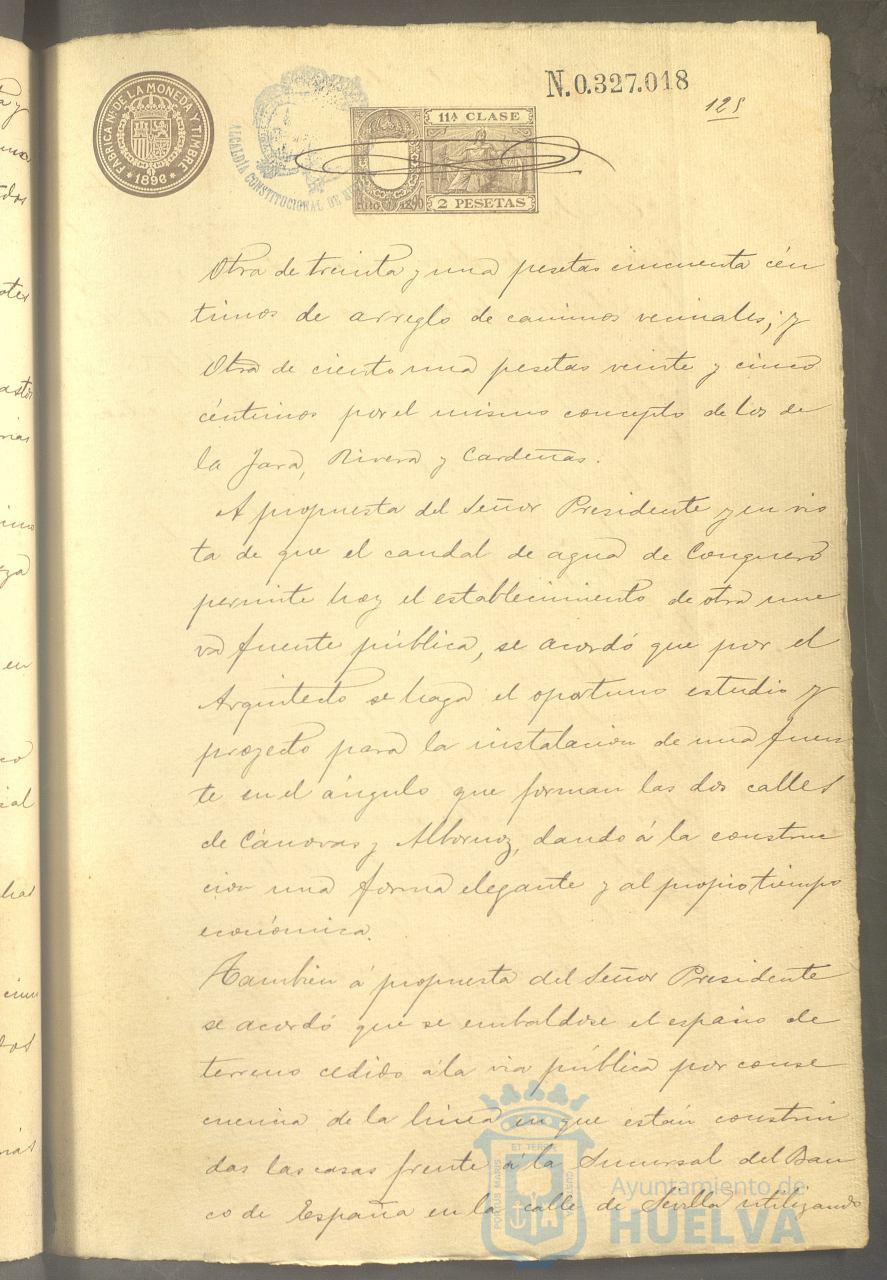 FABRICA Nᴸ DE LA MONEDA Y TIMBRE
* 1896 *
ALCALDÍA CONSTITUCIONAL DE
11ᴬ CLASE
1896
2 PESETAS
N.0.327.018
125
Otra de treinta y una pesetas cincuenta cén
timos de arreglo de caminos vecinales; y
Otra de ciento una pesetas veinte y cinco
céntimos por el mismo concepto de los de
la Jara, Rivera y Cardeñas.
A propuesta del Señor Presidente y en vis
ta de que el caudal de agua de Conquero
permite hoy el establecimiento de otra nue
va fuente pública, se acordó que por el
Arquitecto se haga el oportuno estudio y
proyecto para la instalacion de una fuen
te en el ángulo que forman las dos calles
de Cánovas y Albornoz, dando á la construc
cion una forma elegante y al propio tiempo
económica.
Tambien á propuesta del Señor Presidente
se acordó que se embaldose el espacio de
terreno cedido á la via pública por conse
cuencia de la linea en que están construi
das las casas frente á la Sucursal del Ban
co de España en la calle de Sevilla utilizando
PORTUS MARIS
ET TERRÆ
CUSTODIA
Ayuntamiento de
HUELVA